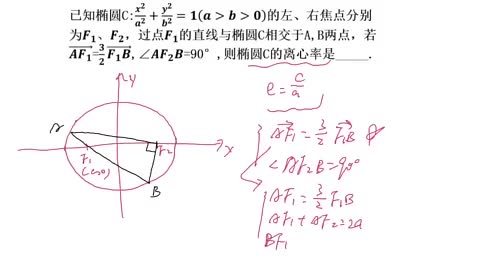 已知椭圆C:x²/a²+y²/b²=1(a>b>0)的左、右焦点分别
为F₁、F₂，过点F₁的直线与椭圆C相交于A,B两点，若
AF₁=3/2F₁B,∠AF₂B=90°,则椭圆C的离心率是_____.
e=c/a
AF₁=3/2F₁B
∠AF₂B=90°
AF₁=3/2F₁B
AF₁+AF₂=2a
BF₁
y
A
F₁
F₂
x
B